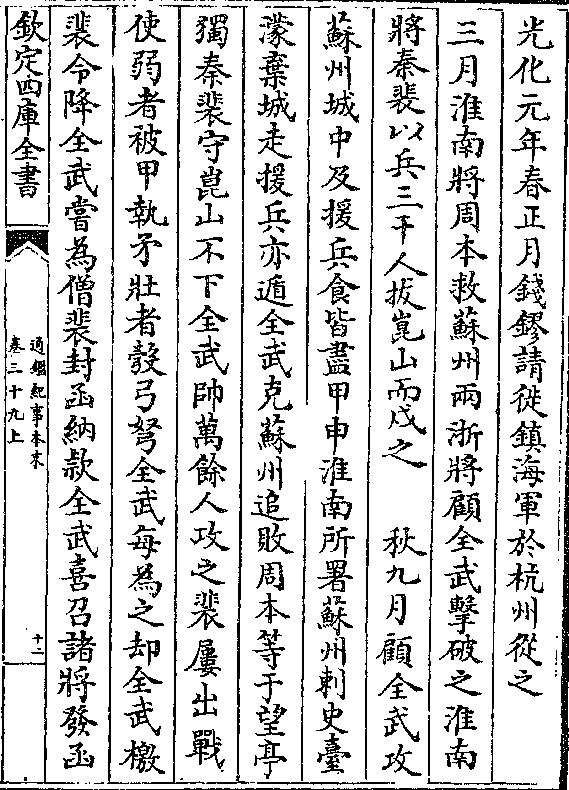 光化元年春正月錢鏐請徙鎮海軍於杭州從之
三月淮南將周本救蘇州兩浙將顧全武擊破之淮南
將秦裴以兵三千人拔崑山而戍之　秋九月顧全武攻
蘇州城中及援兵食皆盡甲申淮南所署蘇州刺史臺
濛棄城走援兵亦遁全武克蘇州追敗周本等于望亭
獨秦裴守崑山不下全武帥萬餘人攻之裴屢出戰
使弱者被甲執矛壯者彀弓弩全武每為之却全武檄
裴令降全武嘗為僧裴封函納款全武喜召諸將發函
欽定四庫全書
通鑑紀事本末
卷三十九上
十二